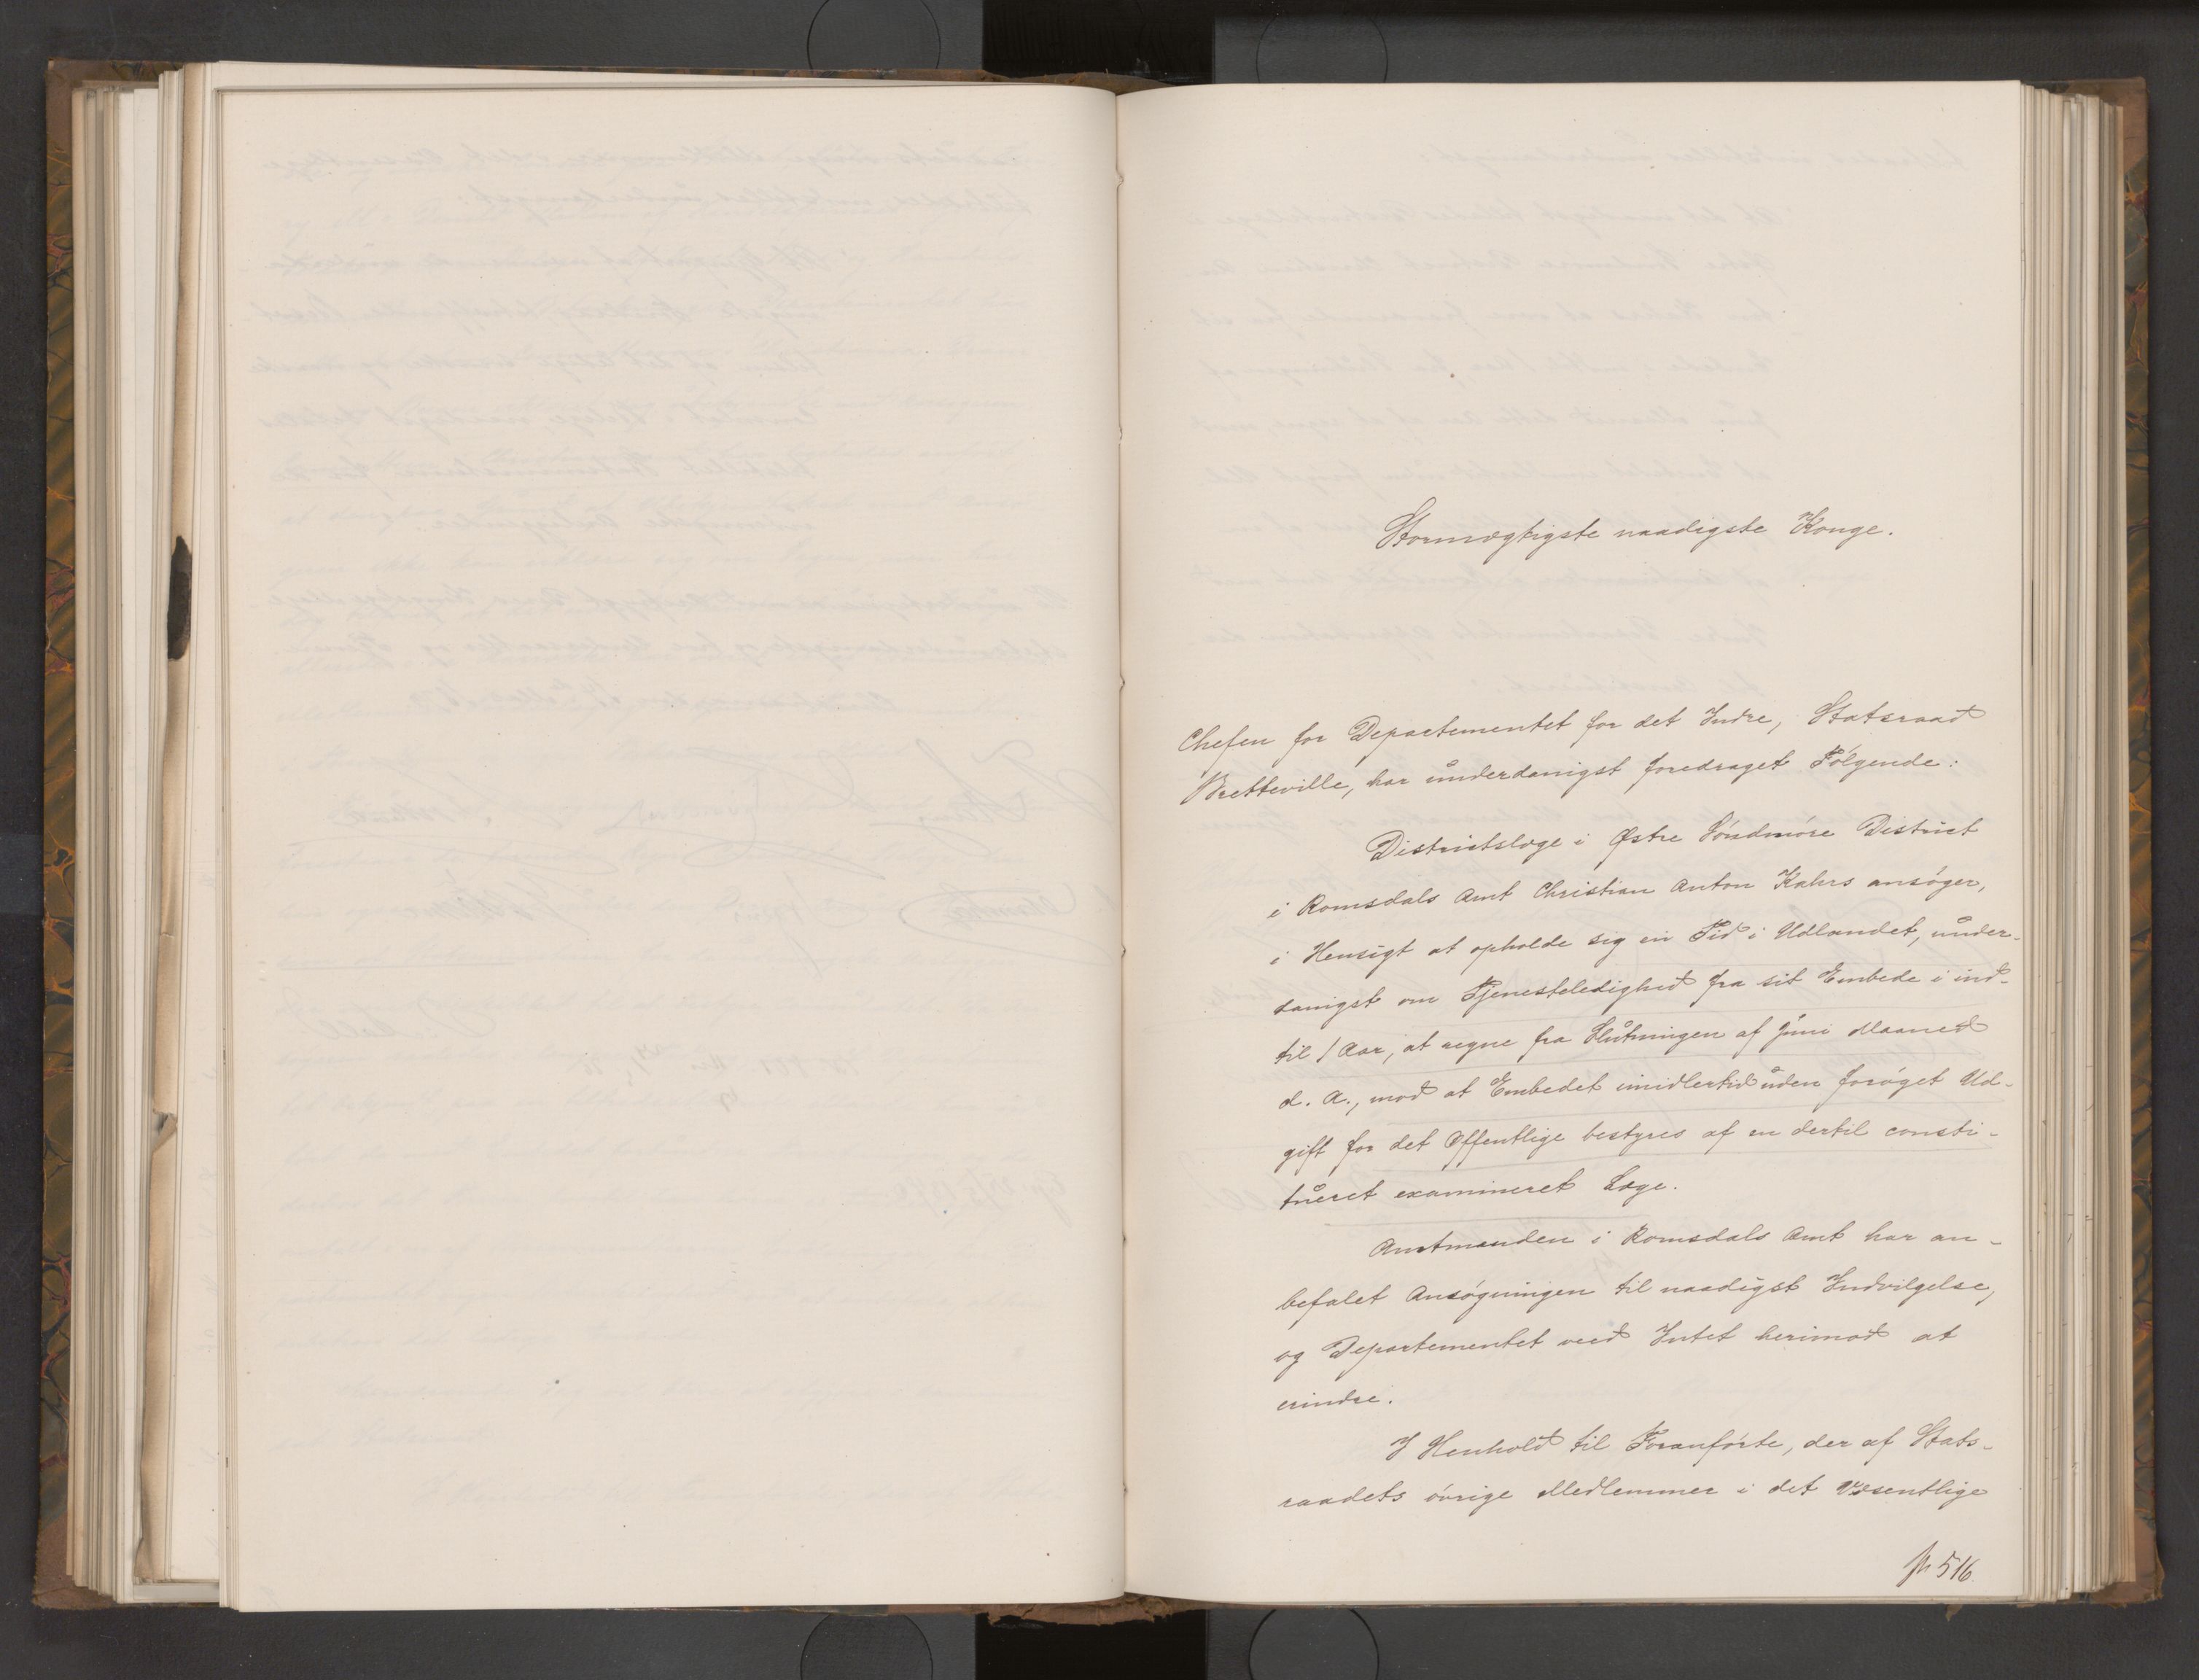 Stormægtigste naadigste Konge.
Chefen for Departementet for det Indre, Statsraad
Bretteville, har underdanigst foredraget Følgende:
Districtslæge i Østre Söndmöre District
i Romsdals Amt Christian Anton Kahrs ansöger,
i Hensigt at opholde sig en Tid i Udlandet, under-
danigst om Tjenesteledighed fra sit Embede i ind-
til 1 Aar, at regne fra Slutningen af Juni Maaned
d. A., mod at Embedet imidlertid uden foröget Ud-
gift for det Offentlige bestyres af en dertil consti-
tueret examineret Læge.
Amtmanden i Romsdals Amt har an-
befalet Ansögningen til naadigst Indvilgelse,
og Departementet veed Intet herimod at
erindre.
I Henhold til Foranförte, der af Stats-
raadets övrige Medlemmer i det Væsentlige
516